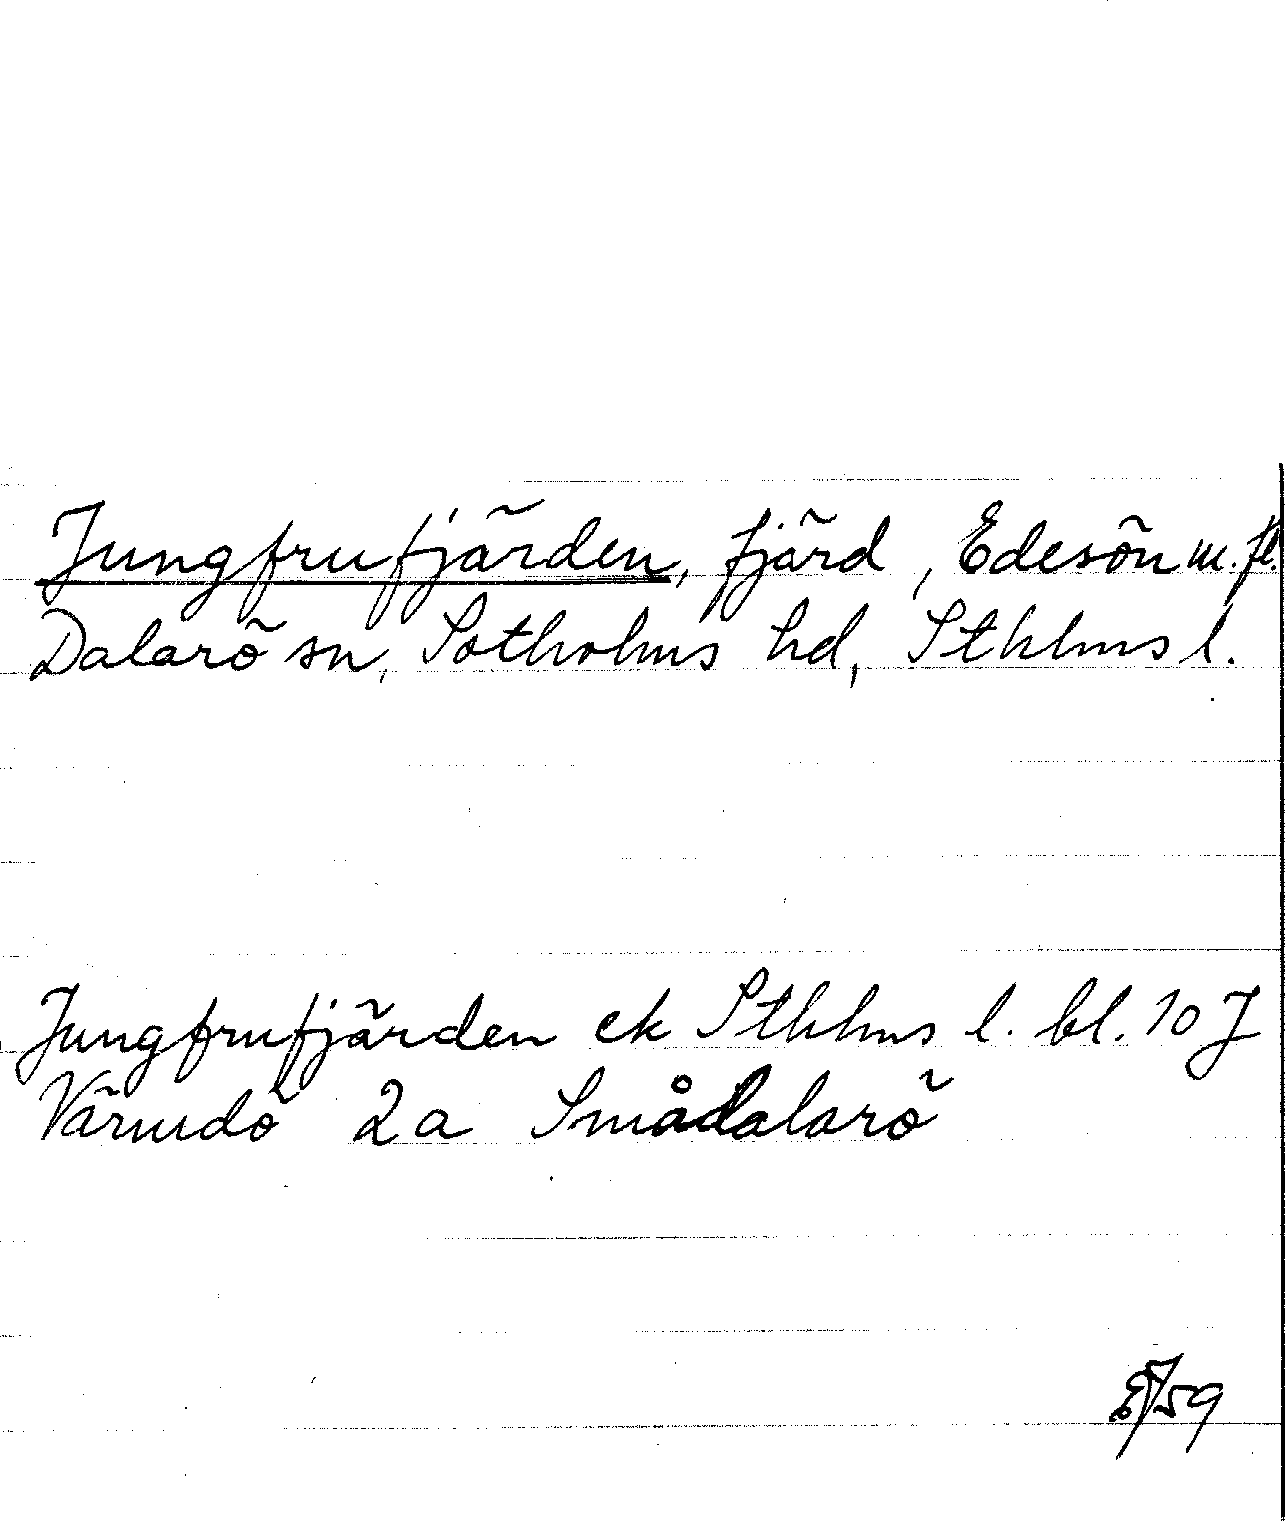 Jungfrufjärden, fjärd, Edesön m.fl.
Dalarö sn, Sotholms hd, Sthlms l.
Jungfrufjärden ek Sthlms l. bl. 10 J
Värmdö 2a Smådalarö
/59